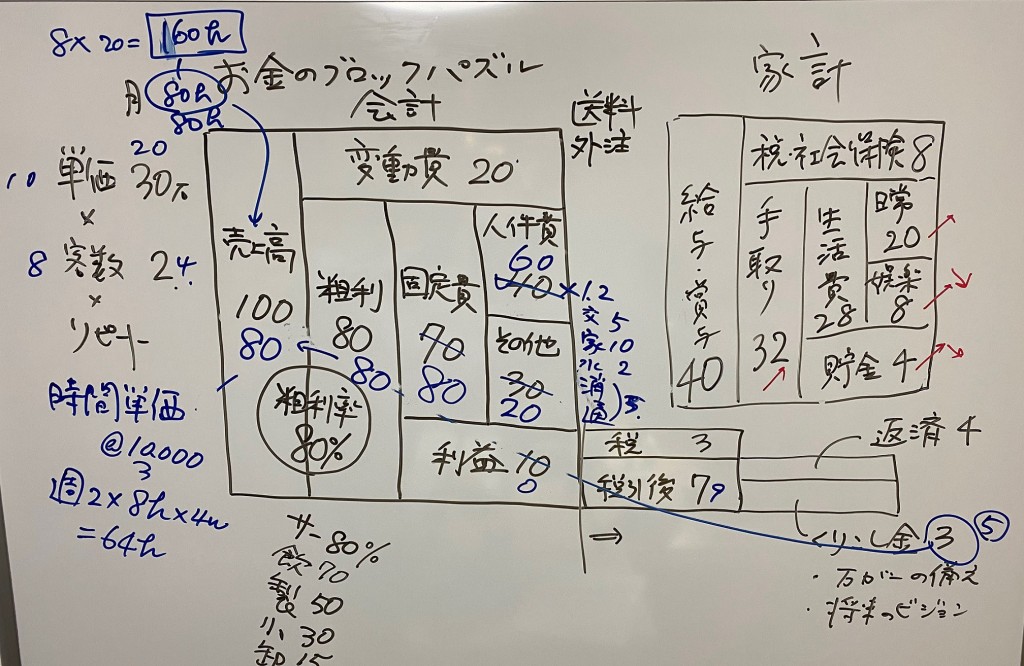 8×20=160h
月 80h
80h
お金のブロックパズル
会計
家計
20
10 単価 30万
×
8 客数 2.4.
×
リピート
時間単価
@10,000
3
週2×8h×4w
=64h
売上高
100
80
変動費 20
粗利
80
80
粗利率
80%
固定費
70
80
人件費
60
40×1.2
その他
30
20
利益 10
0
送料
外注
交 5
家 10
水 2
消
通
税 3
税引後 7
返済 4
くりこし金 3 ⑤
・万が一の備え
・将来のビジョン
⇒
サー 80%
飲 70
製 50
小 30
卸 15
給与・賞与
40
税・社会保険 8
手取り
32
生活費
28
日常
20
娯楽
8
貯金 4